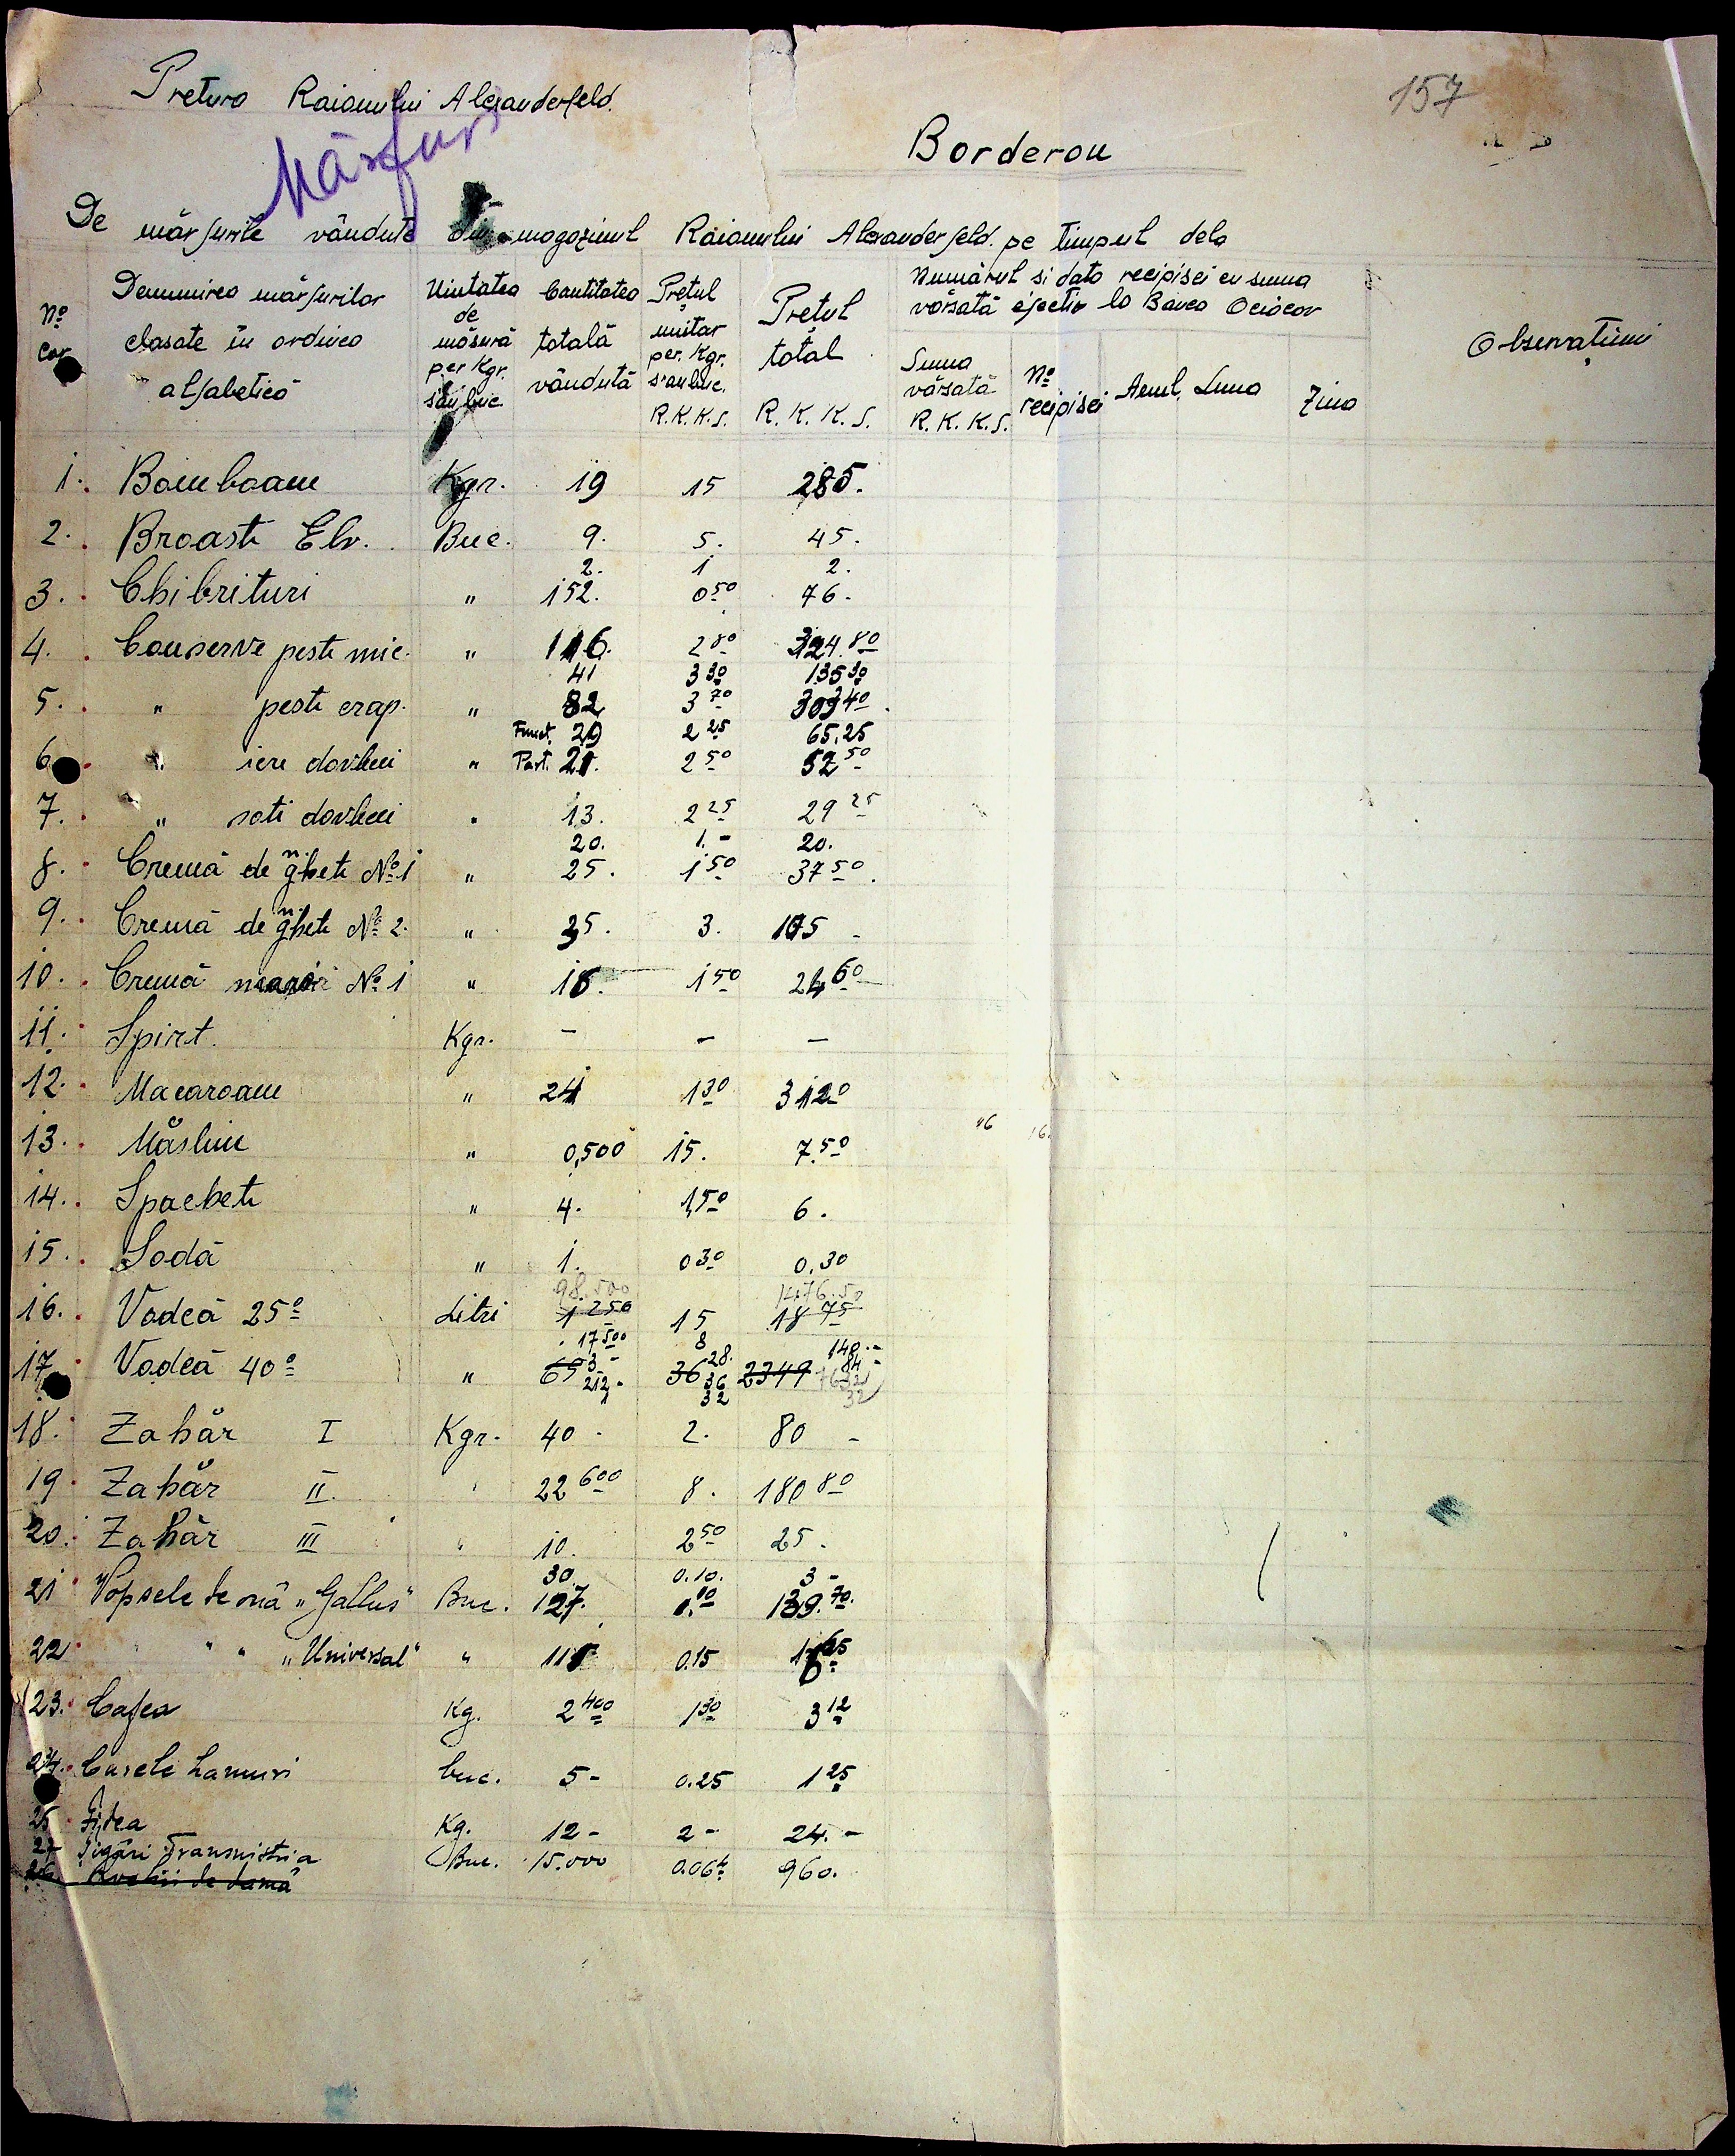 Pretura Raionului Alexanderfeld.
157
Mărfuri
Borderou
De mărfurile vândute din magazinul Raionului Alexanderfeld. pe timpul dela
No Cor
Denumirea mărfurilor clasate în ordinea alfabetică
Unitatea de măsură per Kgr. sau buc.
Cantitatea totală vândută
Prețul unitar per. Kgr. sau buc. R.K.K.S.
Prețul total R. K. K. S.
Numărul si data recipisei cu suma vărsată efectiv la Banca Ociacov
Suma vărsată R. K. K. S.
No recipisei
Anul Luna
Ziua
Observațiuni
1. Bomboane Kgr. 19 15 285.
2. Broaste Elv. Buc. 9. 5. 45.
2. 1 2.
3. Chibrituri " 152. 0 50 76.
4. Conserve peste mic. " 116. 2 80 324.80
41 3 30 135 30
5. " peste crap. " 82 3 70 303 40
Funct. 29 2 25 65.25
6. " icre dovleci " Part. 21. 2 50 52 50
7. " sote dovleci " 13. 2 25 29 25
20. 1.- 20.
8. Cremă de ghete No 1 " 25. 1 50 37 50.
9. Cremă de ghete No 2. " 35. 3. 105 -
10. Cremă No 1 " 16. 1 50 24
11. Spirt. Kgr. - - -
12. Macaroane " 24 1 30 31 20
13. Măsline " 0,500 15. 7.50
14. Spachete " 4. 1,50 6.
15. Sodă " 1. 0 30 0.30
98.500 1476.50
16. Vodcă 25o Litri 1 250 15 18 75
17 500 8 140.-
3- 28. 84-
17. Vodcă 40o " 65 36 2349
212. 36
32
18. Zahăr I Kgr. 40 2. 80 -
19 Zahăr II. " 22 600 8. 180 80
20. Zahăr III " 10. 2 50 25.
30. 0.10. 3-
21 Vopsele de ouă "Gallus" Buc. 127. 1.10 139.70.
22 " " "Universal" " 111 0.15 16 65
23. Cafea Kg. 2 400 1 30 3 12
24. Curele hamuri buc. 5- 0.25 1 25
25 Fidea Kg. 12- 2- 24.-
27 Țigări Transnistria Buc. 15.000 0.064 960.
26. de damă